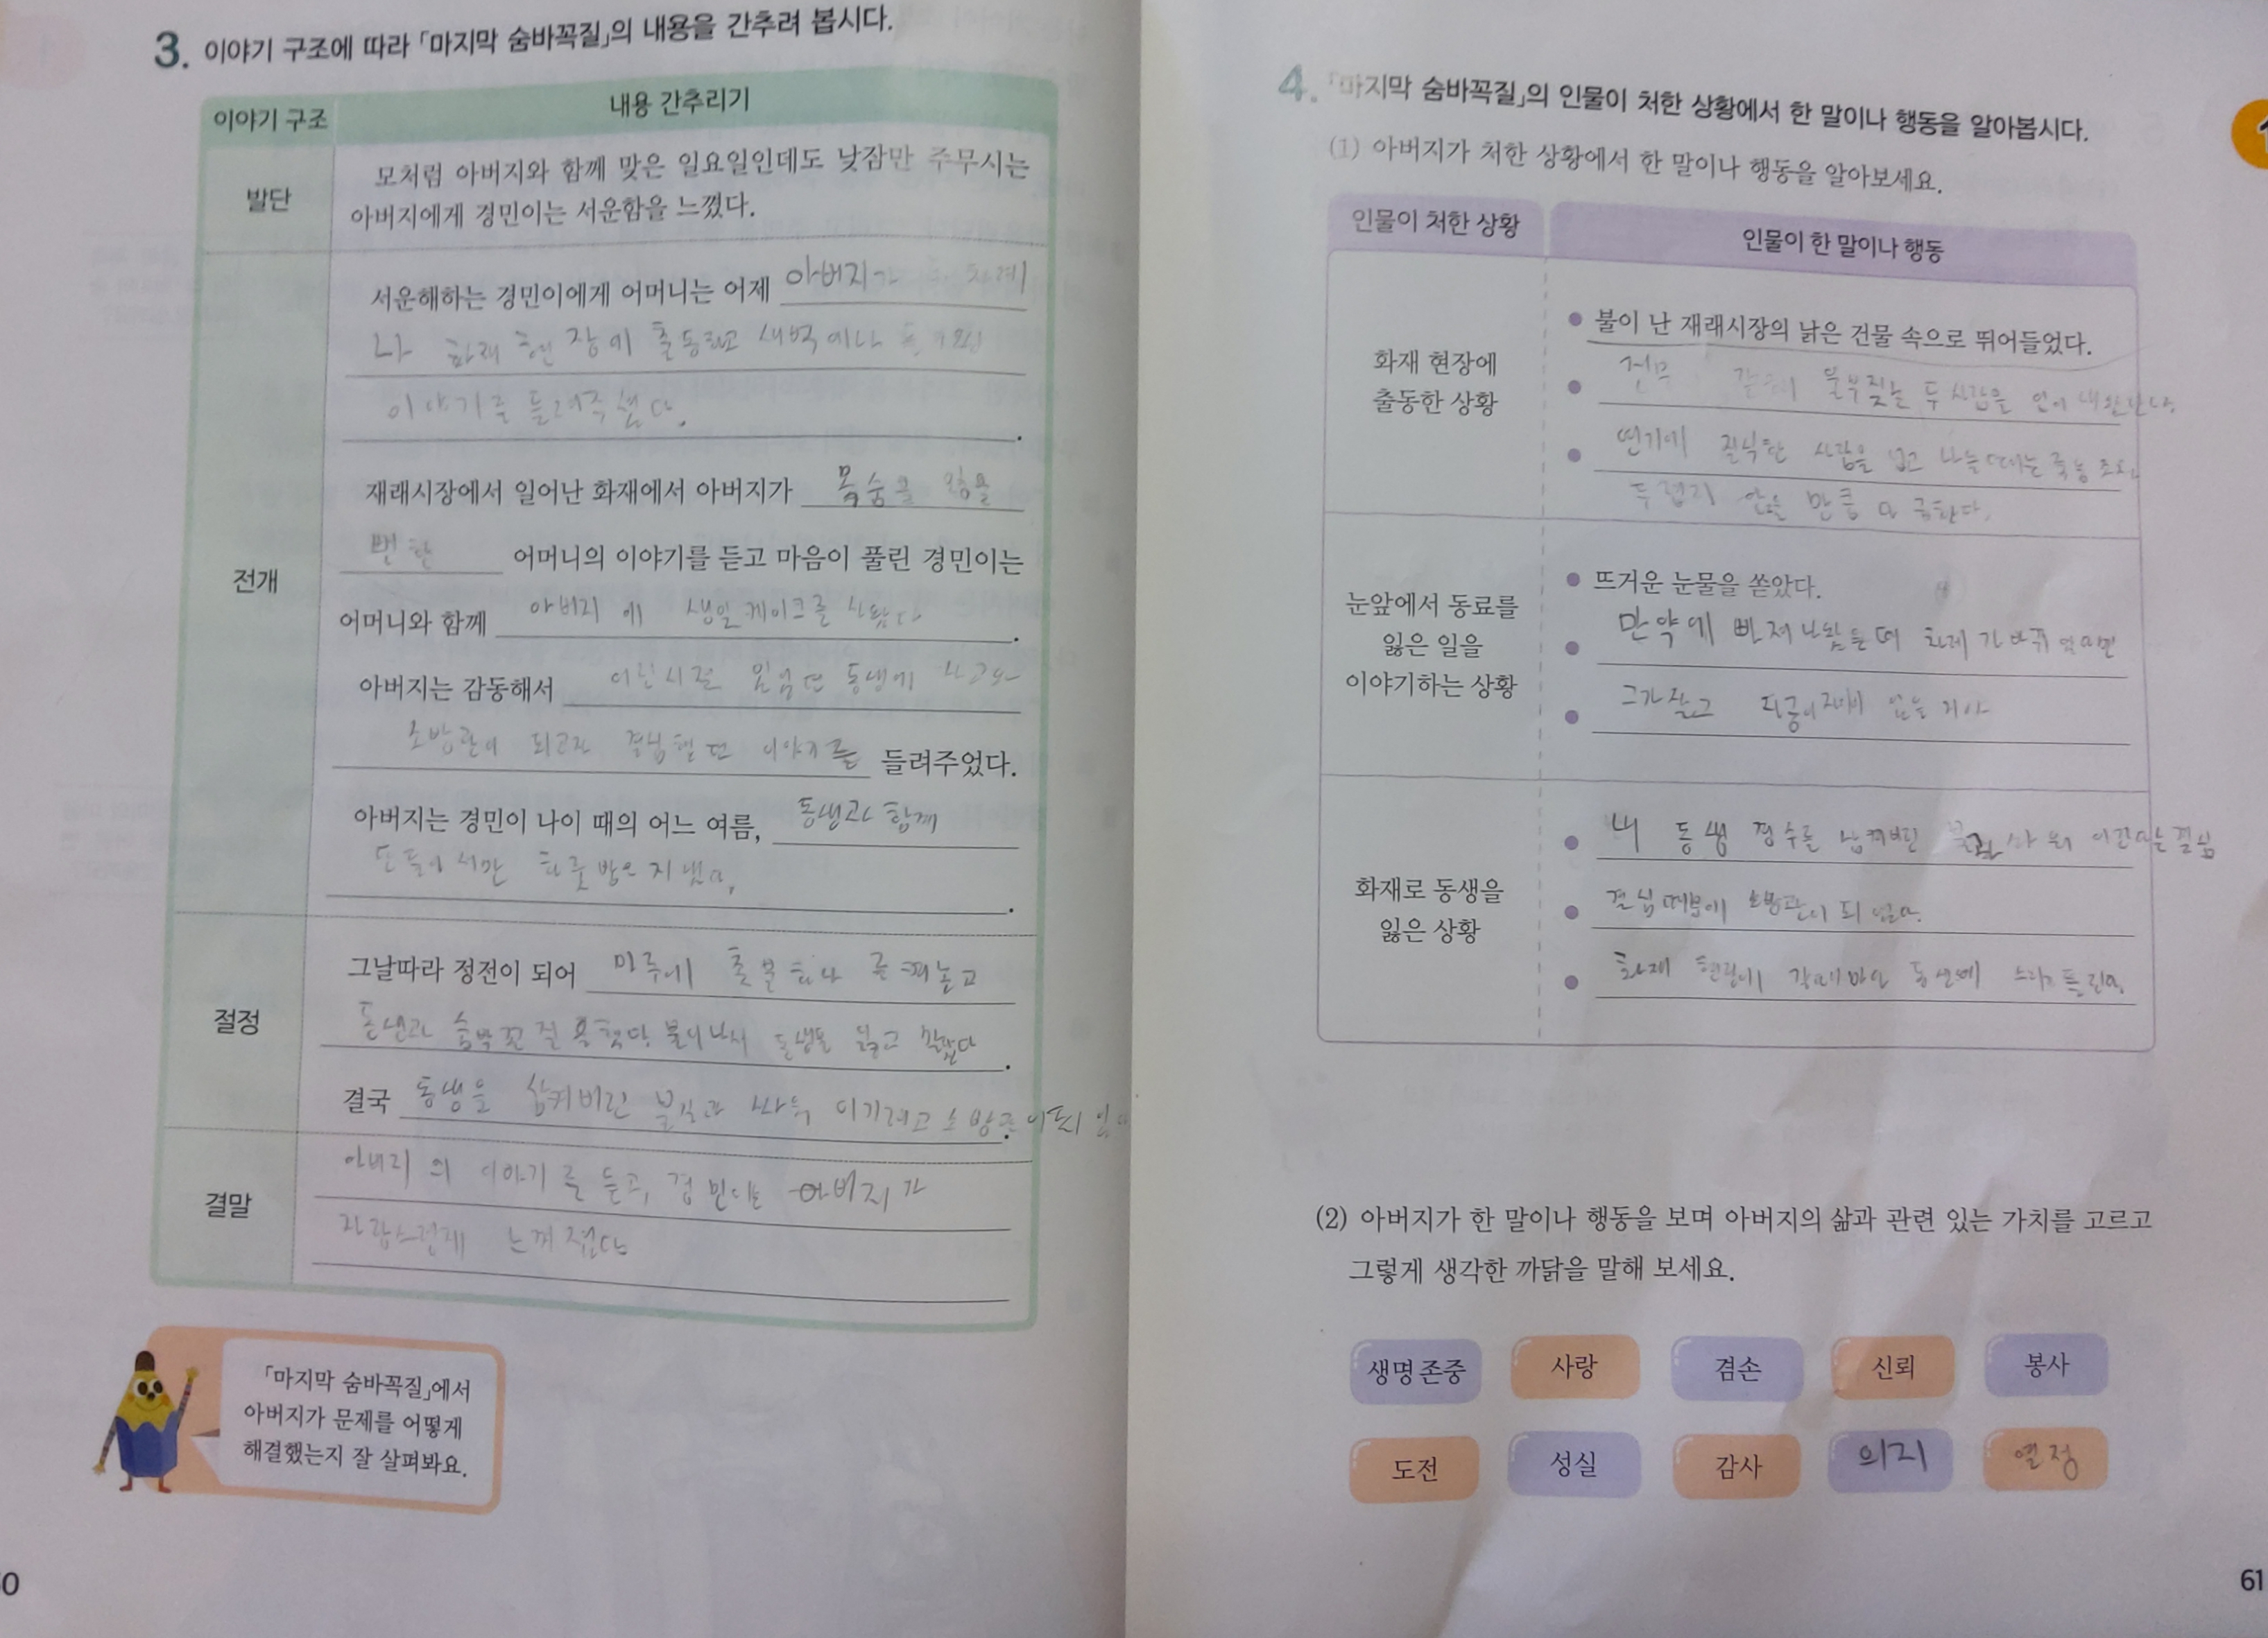 3. 이야기 구조에 따라 「마지막 숨바꼭질」의 내용을 간추려 봅시다.
이야기 구조
내용 간추리기
발단
모처럼 아버지와 함께 맞은 일요일인데도 낮잠만 주무시는
아버지에게 경민이는 서운함을 느꼈다.
전개
서운해하는 경민이에게 어머니는 어제 아버지가
나 화재 현장에 출동하고 새벽에나
이야기를 들려주했다.
재래시장에서 일어난 화재에서 아버지가 목숨을 잃을
뻔한 어머니의 이야기를 듣고 마음이 풀린 경민이는
어머니와 함께 아버지에 생일케이크를 사왔다.
아버지는 감동해서 어린시절 동생에
소방관이 되고자 결심했던 이야기를 들려주었다.
아버지는 경민이 나이 때의 어느 여름, 동생과 함께
단둘이서만 하룻밤은 지냈다.
절정
그날따라 정전이 되어 마루에 촛불하나 를 켜놓고
동생과 불이나서 동생을 잃고 말았다.
결국 동생을 삼켜버린 불길과 싸워 이기려고
결말
아버지의 이야기를 듣고, 경민이는 아버지가
자랑스럽게 느껴졌다
「마지막 숨바꼭질」에서
아버지가 문제를 어떻게
해결했는지 잘 살펴봐요.
4. 「마지막 숨바꼭질」의 인물이 처한 상황에서 한 말이나 행동을 알아봅시다.
(1) 아버지가 처한 상황에서 한 말이나 행동을 알아보세요.
인물이 처한 상황
인물이 한 말이나 행동
화재 현장에
출동한 상황
● 불이 난 재래시장의 낡은 건물 속으로 뛰어들었다.
● 울부짖는 두 사람을
● 연기에 질식한 사람을 업고 나올때는
두렵지 않을 만큼
눈앞에서 동료를
잃은 일을
이야기하는 상황
● 뜨거운 눈물을 쏟았다.
● 만약에 빠져나왔을때
● 없을 거야
화재로 동생을
잃은 상황
● 내 동생 경수를 삼켜버린
● 결심때문에 소방관이 되었다.
● 화재 현장에 갈때마다 동생에
(2) 아버지가 한 말이나 행동을 보며 아버지의 삶과 관련 있는 가치를 고르고
그렇게 생각한 까닭을 말해 보세요.
생명 존중 사랑 겸손 신뢰 봉사
도전 성실 감사 의리 열정
61